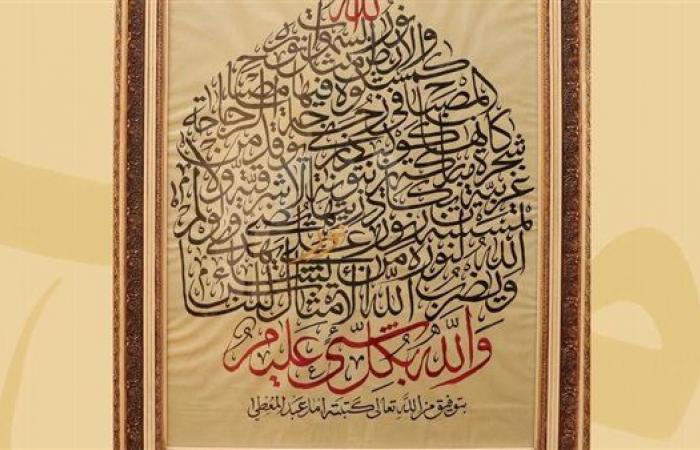 الله
نور السموت
والارض مثل نوره
كمشكوة فيها مصباح
المصباح في زجاجة الزجاجة
كأنها كوكب دري يوقد من
شجرة مباركة زيتونة لا شرقية ولا
غربية يكاد زيتها يضيء ولو لم
تمسسه نار نور على نور يهدي
الله لنوره من يشاء
ويضرب الله الأمثال للناس
والله بكل شيء عليم
بتوفيق من الله تعالى كتبته عبد المعطي